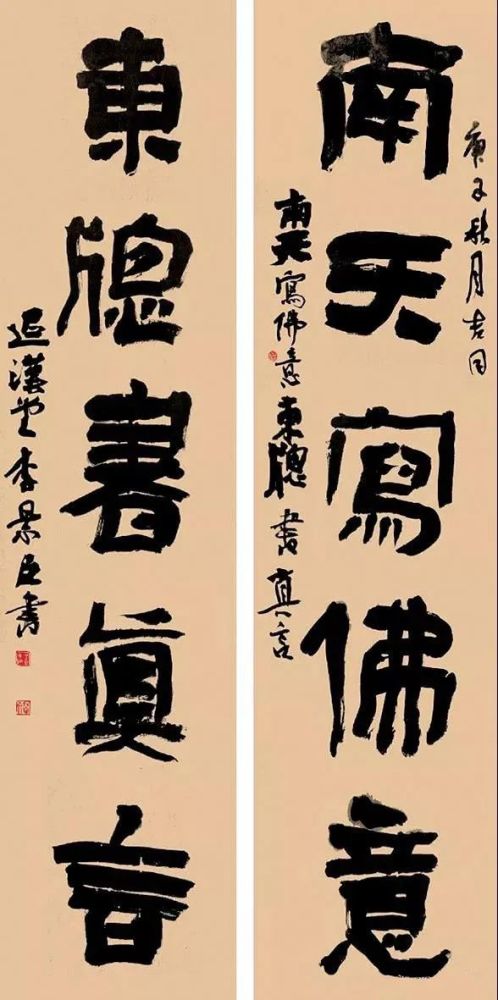 庚子秋月吉日
南天寫佛意
南天寫佛意東牕書真言
東牕書眞言
延漢堂李景臣書